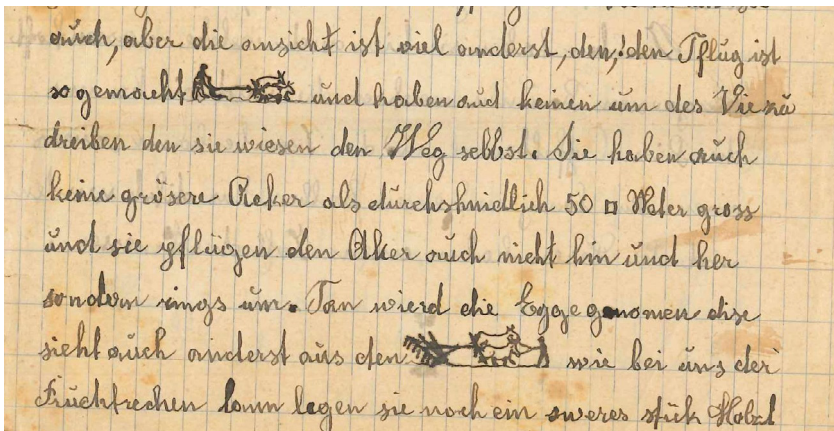 auch, aber die ansicht ist viel anderst, den, den Pflug ist
so gemacht und haben auch keinen um des Vie zu
dreiben den sie wiesen den Weg selbst. Sie haben auch
keine grösere Acker als durchshnidlich 50 □ Meter gross
und sie pflügen den Aker auch nicht hin und her
sondern rings um. Tan wierd die Egge genomen dise
sieht auch anderst aus den wie bei uns der
legen sie noch ein sweres stük